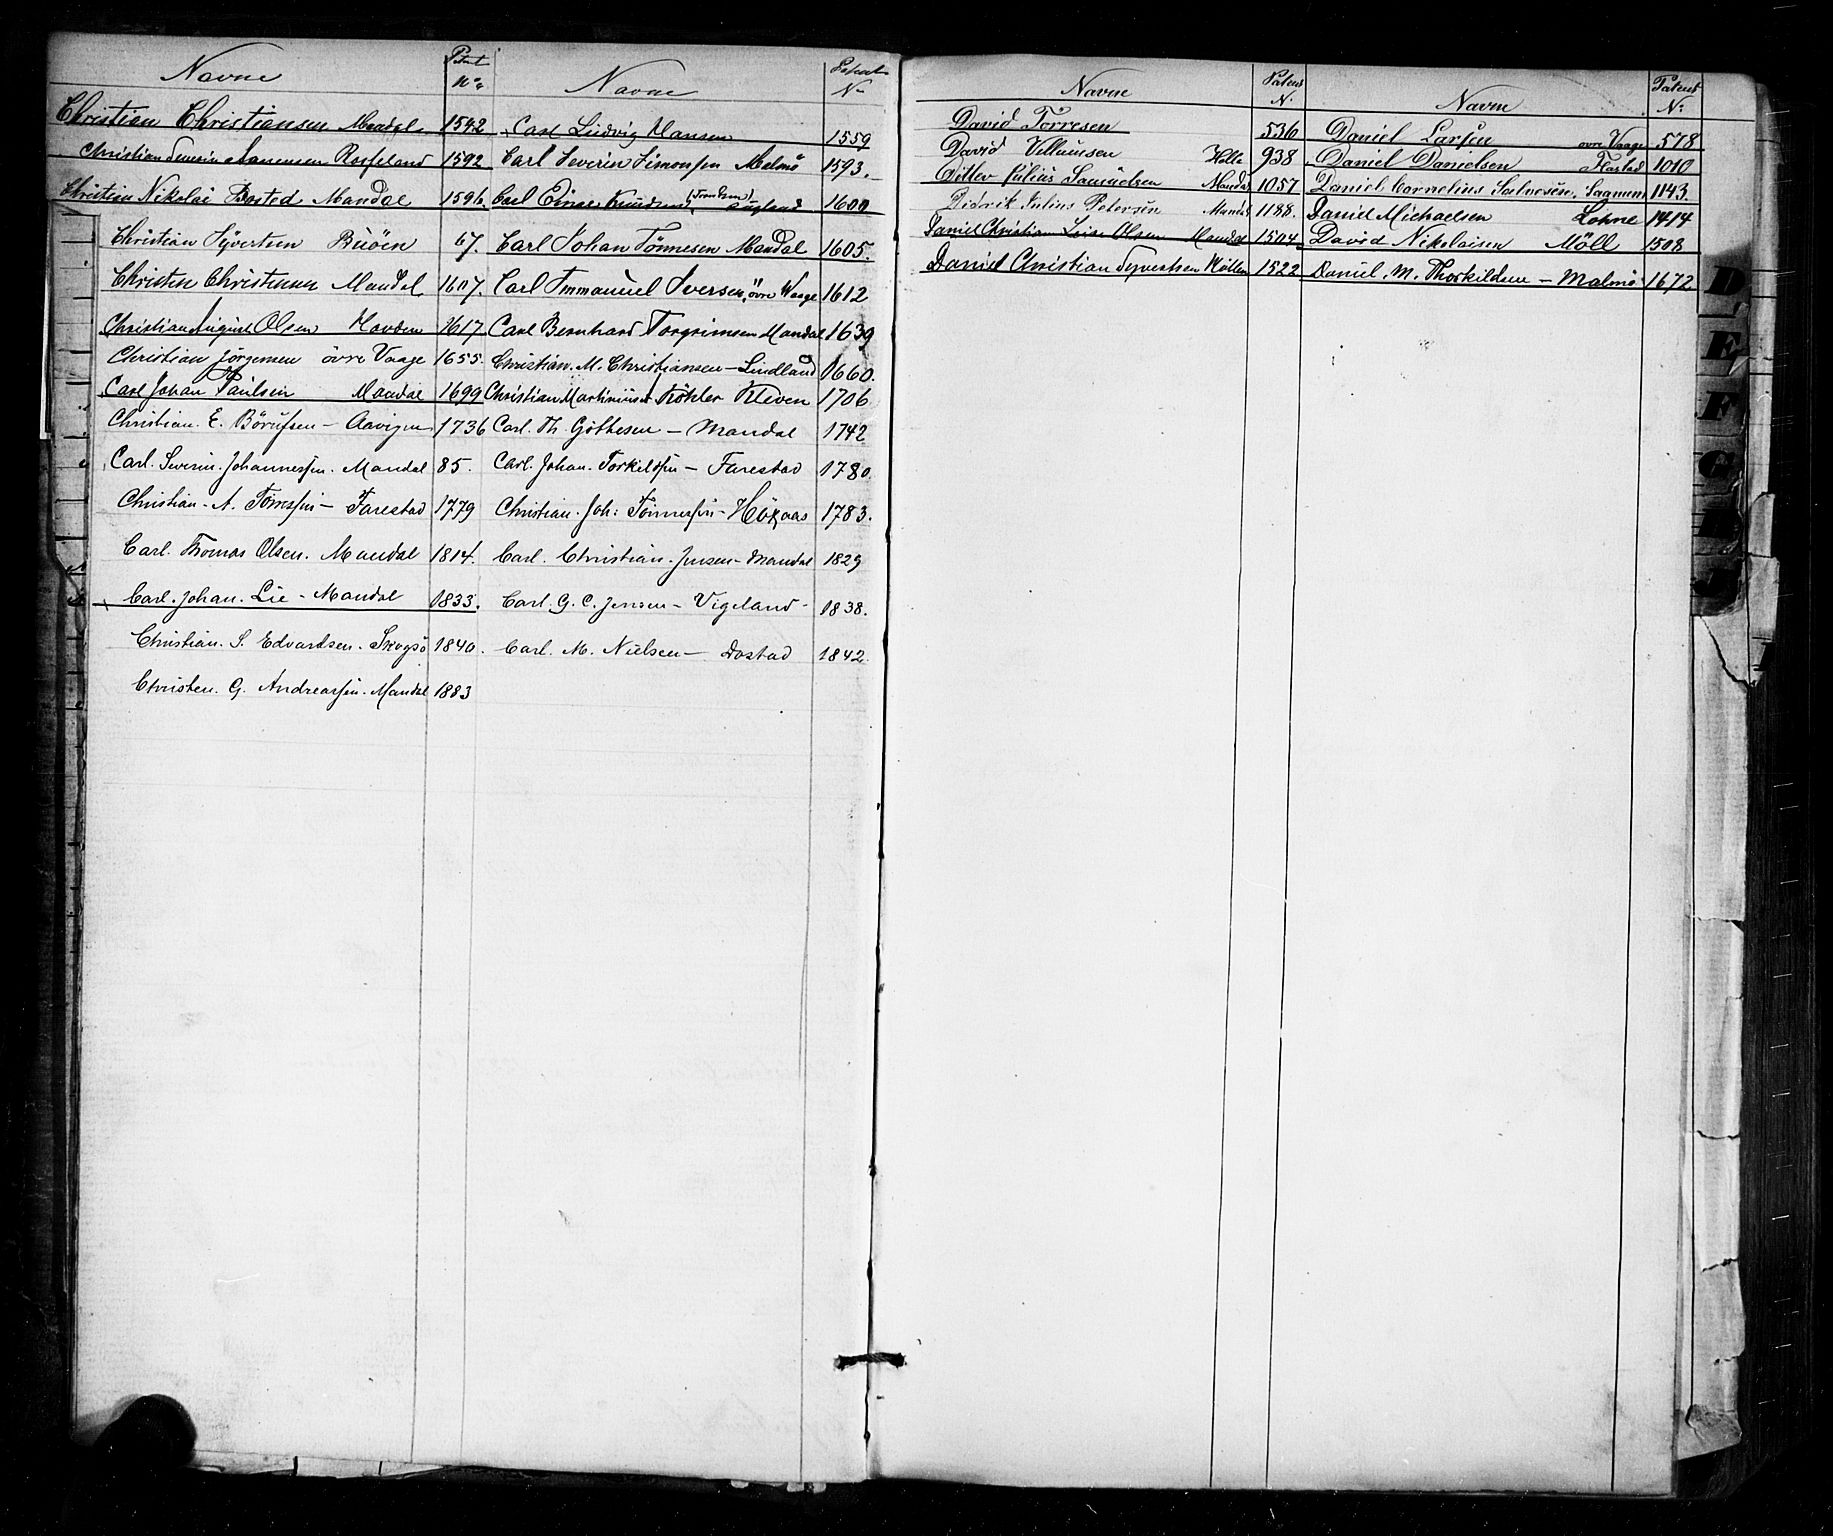 Navne Patent No. Navne Patent No
Christian Christiansen Mandal 1542 Carl Ludvig Hansen 1559
Christian Severin Rosseland 1592 Carl Severin Simonsen Malmö 1593.
Christian Nikolai Bosted Mandal 1596. Carl Einar Knudsen 1600
Christian Syvertsen Buöen 67. Carl Johan Tönnesen Mandal 1605.
Christen Christensen Mandal 1607. Carl Immanuel Iversen, övre Waage 1612
Christian August Olsen Havden 1617 Carl Bernhard Torgrimsen Mandal 1639
Christian Jörgensen övre Vaage 1655. Christian. M. Christiansen - Lindland 1660.
Carl Johan Paulsen Mandal 1699 Christian Martinius Köhler Kleven 1706
Christian. E. Börufsen - Aavigen 1736 Carl. Th. Göthesen - Mandal 1742
Carl. Severin. Johannessen. Mandal 85. Carl. Johan. Torkildsen - Farestad 1780.
Christian. A. Tönnessen - Farestad 1779 Christian. Joh: Tönnessen - Hökaas 1783.
Carl. Thomas Olsen. Mandal 1814. Carl. Christian. Jensen - Mandal 1829
Carl. Johan. Lie - Mandal 1833. Carl. G. C. Jensen - Vigeland - 1838.
Christian. S. Edvardsen. Skogsö 1840. Carl. M. Nielsen - Dostad 1842.
Christen. G. Andreassen. Mandal 1883
Navne Patent N. Navne Patent No
David Torresen 536 Daniel Larsen övre Vaage 578
David Villumsen Helle 938 Daniel Danielsen Farstad 1010
Ditlev Julius Samuelsen Mandal 1057 Daniel Cornelius Salvesen, 1143.
Didrik Julius Petersen Mandal 1188. Daniel Michaelsen Lohne 1414
Daniel Christian Olsen Mandal 1504 David Nikolaisen Möll 1508
Daniel Christian Syvertsen 1522 Daniel. M. Thorkildsen - Malmö 1672
D
E
F
G
H
J